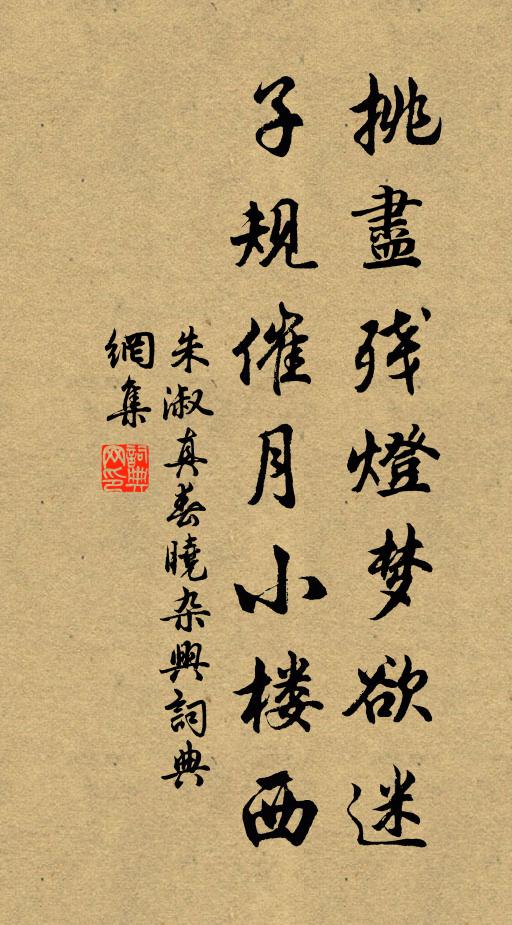 挑盡残燈梦欲迷
子规催月小楼西
朱淑真春曉杂興詞典
網集
詞典
网印